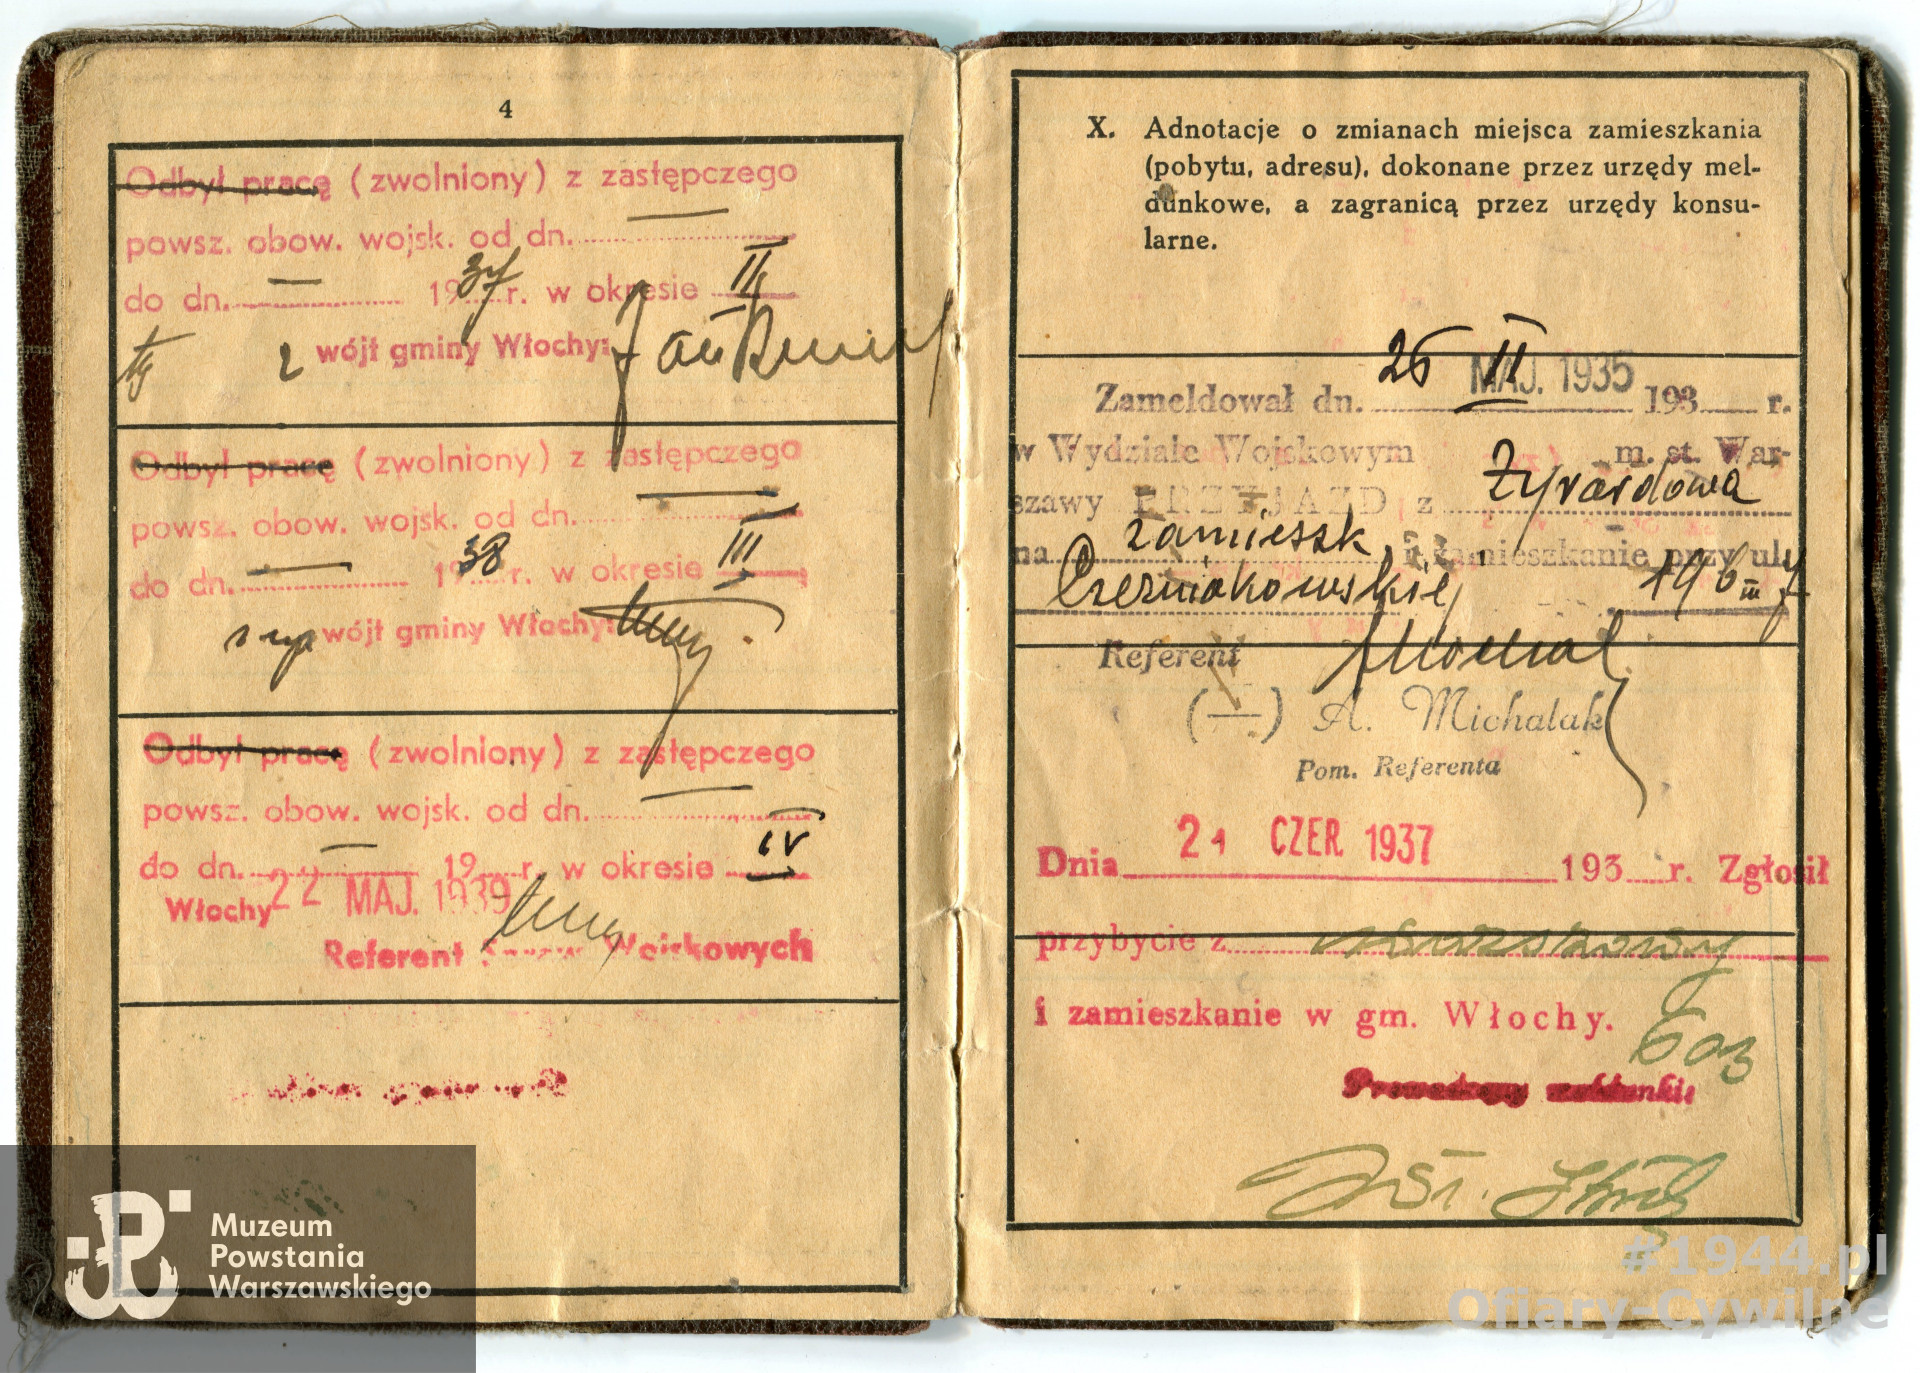 4
Odbył pracę (zwolniony) z zastępczego
powsz. obow. wojsk. od dn.
do dn. 1937 r. w okresie II
wójt gminy Włochy:
Odbył pracę (zwolniony) z zastępczego
powsz. obow. wojsk. od dn.
do dn. 1938 r. w okresie III
wójt gminy Włochy:
Odbył pracę (zwolniony) z zastępczego
powsz. obow. wojsk. od dn.
do dn. 19 r. w okresie IV
Włochy 22 MAJ. 1939
Referent Spraw Wojskowych
X. Adnotacje o zmianach miejsca zamieszkania
(pobytu, adresu), dokonane przez urzędy mel-
dunkowe, a zagranicą przez urzędy konsu-
larne.
Zameldował dn. 26 II MAJ. 1935 193 r.
w Wydziale Wojskowym m. st. War-
szawy PRZYJAZD z Żyrardowa
na zamieszk. i zamieszkanie przy ul.
Czerniakowskiej 196 m 7
Referent
(—) A. Michalak
Pom. Referenta
Dnia 21 CZER 1937 193 r. Zgłosił
przybycie z Warszawy
i zamieszkanie w gm. Włochy.
603
Prowadzący meldunki
Muzeum
Powstania
Warszawskiego
#1944.pl
Ofiary-Cywilne